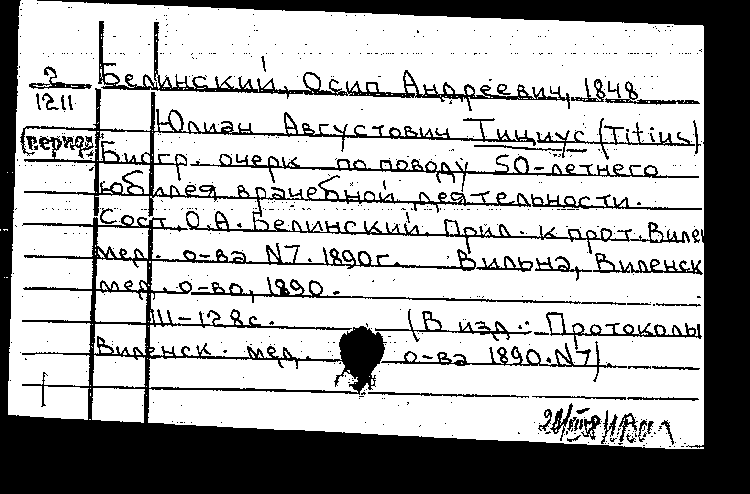 2 Белинский, Осип Андреевич, 1848
1211
Юлиан Августович Тициус (Titius)
период Биогр. очерк по поводу 50-летнего
юбилея врачебной деятельности.
Сост. О.А. Белинский. Прил. к прот. Вилен
мед. о-ва N7. 1890г. Вильна, Виленск
мед. о-во, 1890.
111-128с. (В изд.: Протоколы
Виленск. мед. о-ва 1890. N7).